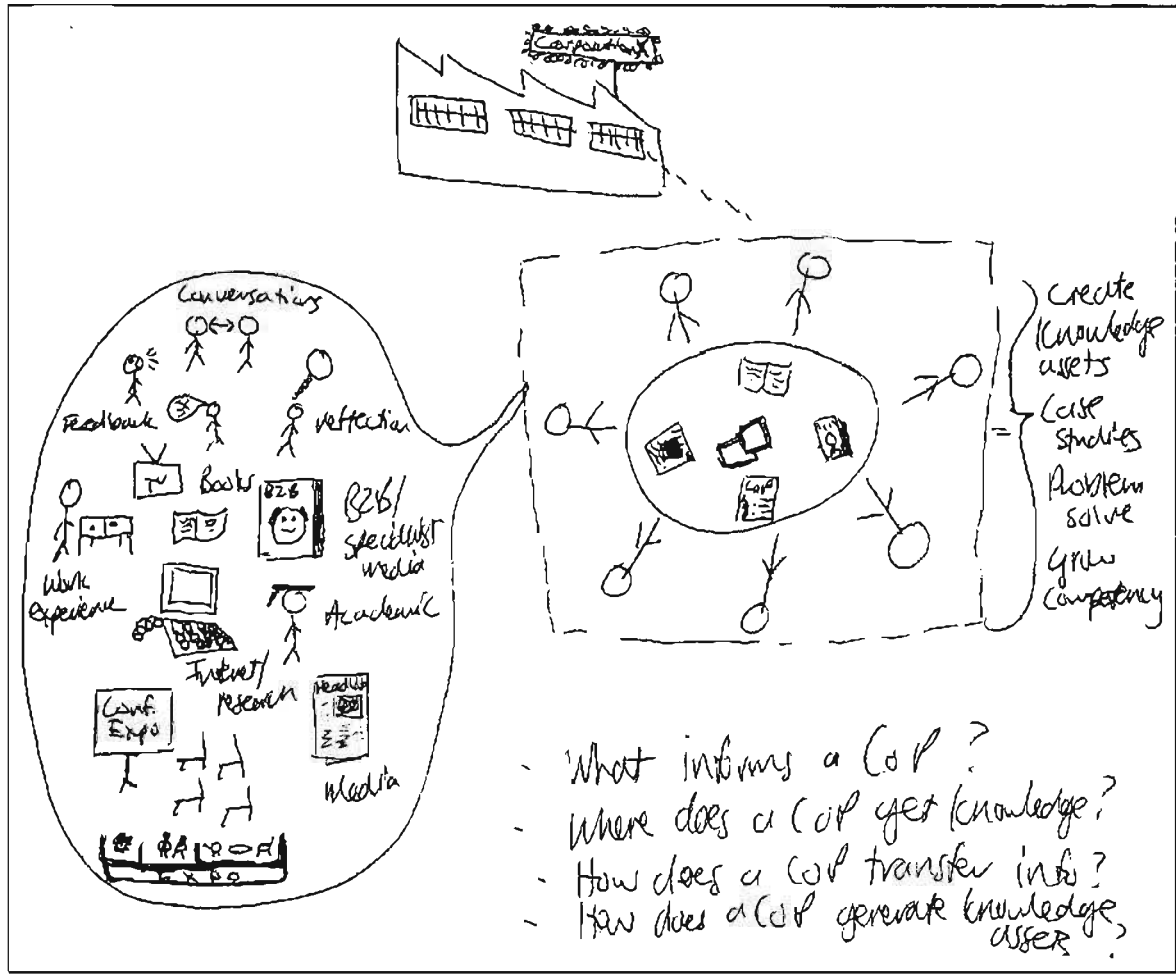 Corporation X
Conversations
Feedback
reflection
TV
Books
B2B
B2B/
specialist
media
Work
Experience
Academic
Internet/
research
Conf.
Expo
Headline
Media
EXPO
CoP
=
Create
Knowledge
assets
Case
studies
Problem
solve
Grow
competency
- What informs a CoP?
- Where does a CoP get knowledge?
- How does a CoP transfer info?
- How does a CoP generate knowledge
assets?